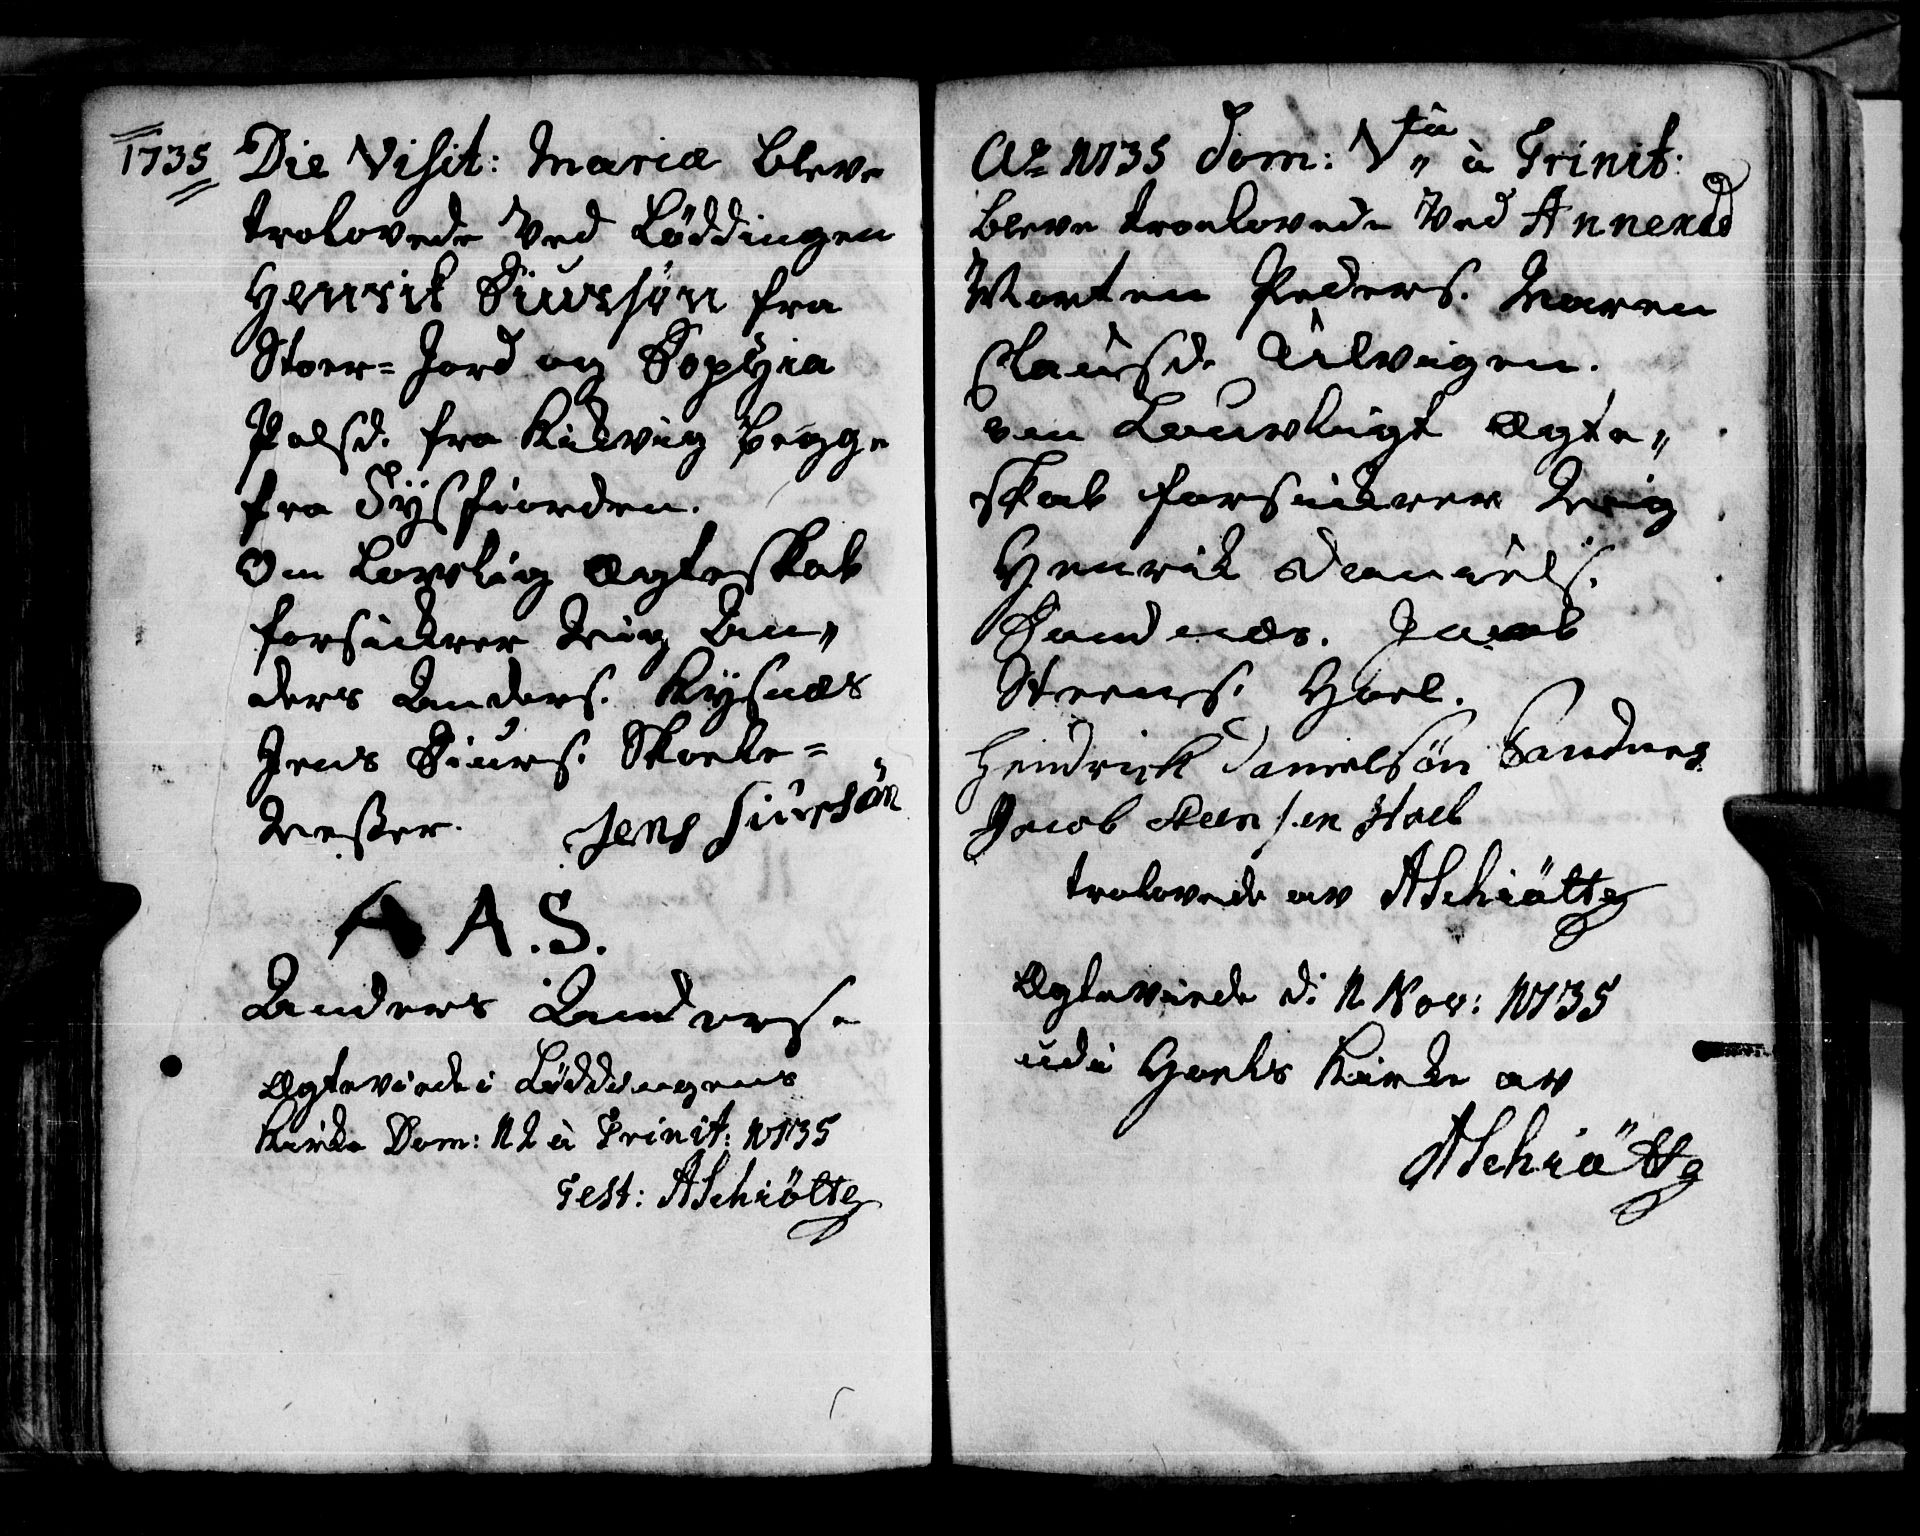 1735
Die Visit: Mariæ bleve
trolovede Ved Löddingen
Henrik Siursøn fra
Stoer= Jord og Sophia
Polsd. fra Kilvig begge
fra Tysfiorden.
Om Lovlig Ægteskab
forsickrer Wiig An„
ders Anders. Rysnæs
Jens Siurs. Skoele=
Mester. Jens Siursön
A A. S.
Anders Anders.
Ægteviede i Löddingens
Kirke Dom: 12 à Trinit: 1735
Test: ASchiötte
Aº 1735 Dom: Vta à Trinit:
bleve troelovede Ved Annexed
Morten Peders. Maren
Clausd. Ulvigen.
om Lauvligt Ægte„
skab forsickrer Wiig
Henrik Daniels.
Sandnæs. Jacob
Steens. Hoel.
Hendrick Danielsön Sandnes
Jacob Steensen Hoel
trolovede av ASchiötte
Ægteviede d: 1 Nov: 1735
udi Hoels Kirke av
ASchiötte